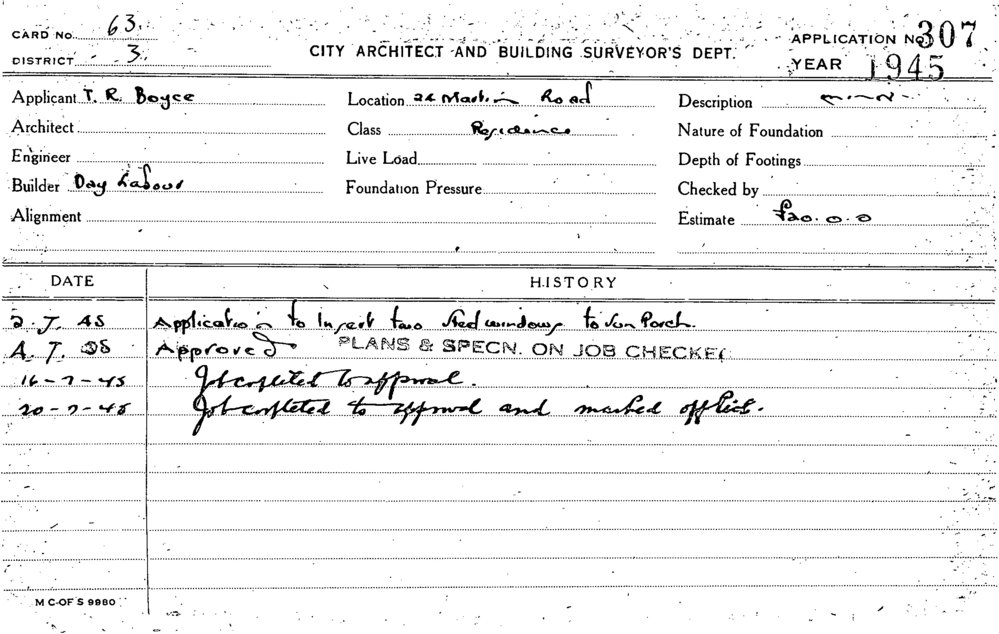 CARD No. 63.
DISTRICT 3.
CITY ARCHITECT AND BUILDING SURVEYOR'S DEPT.
APPLICATION No. 307
YEAR 1945
Applicant T. R. Boyce Location 24 Martin Road Description
Architect Class Residence Nature of Foundation
Engineer Live Load Depth of Footings
Builder Day Labour Foundation Pressure Checked by
Alignment Estimate £20.0.0
DATE HISTORY
2. 7. 45 Application to Insert two steel windows to Sun Porch.
4. 7. 45 Approved PLANS & SPECN. ON JOB CHECKED
16-7-45 Job completed to approval.
20-7-45 Job completed to approval and marked off list.
M C-OF S 9980